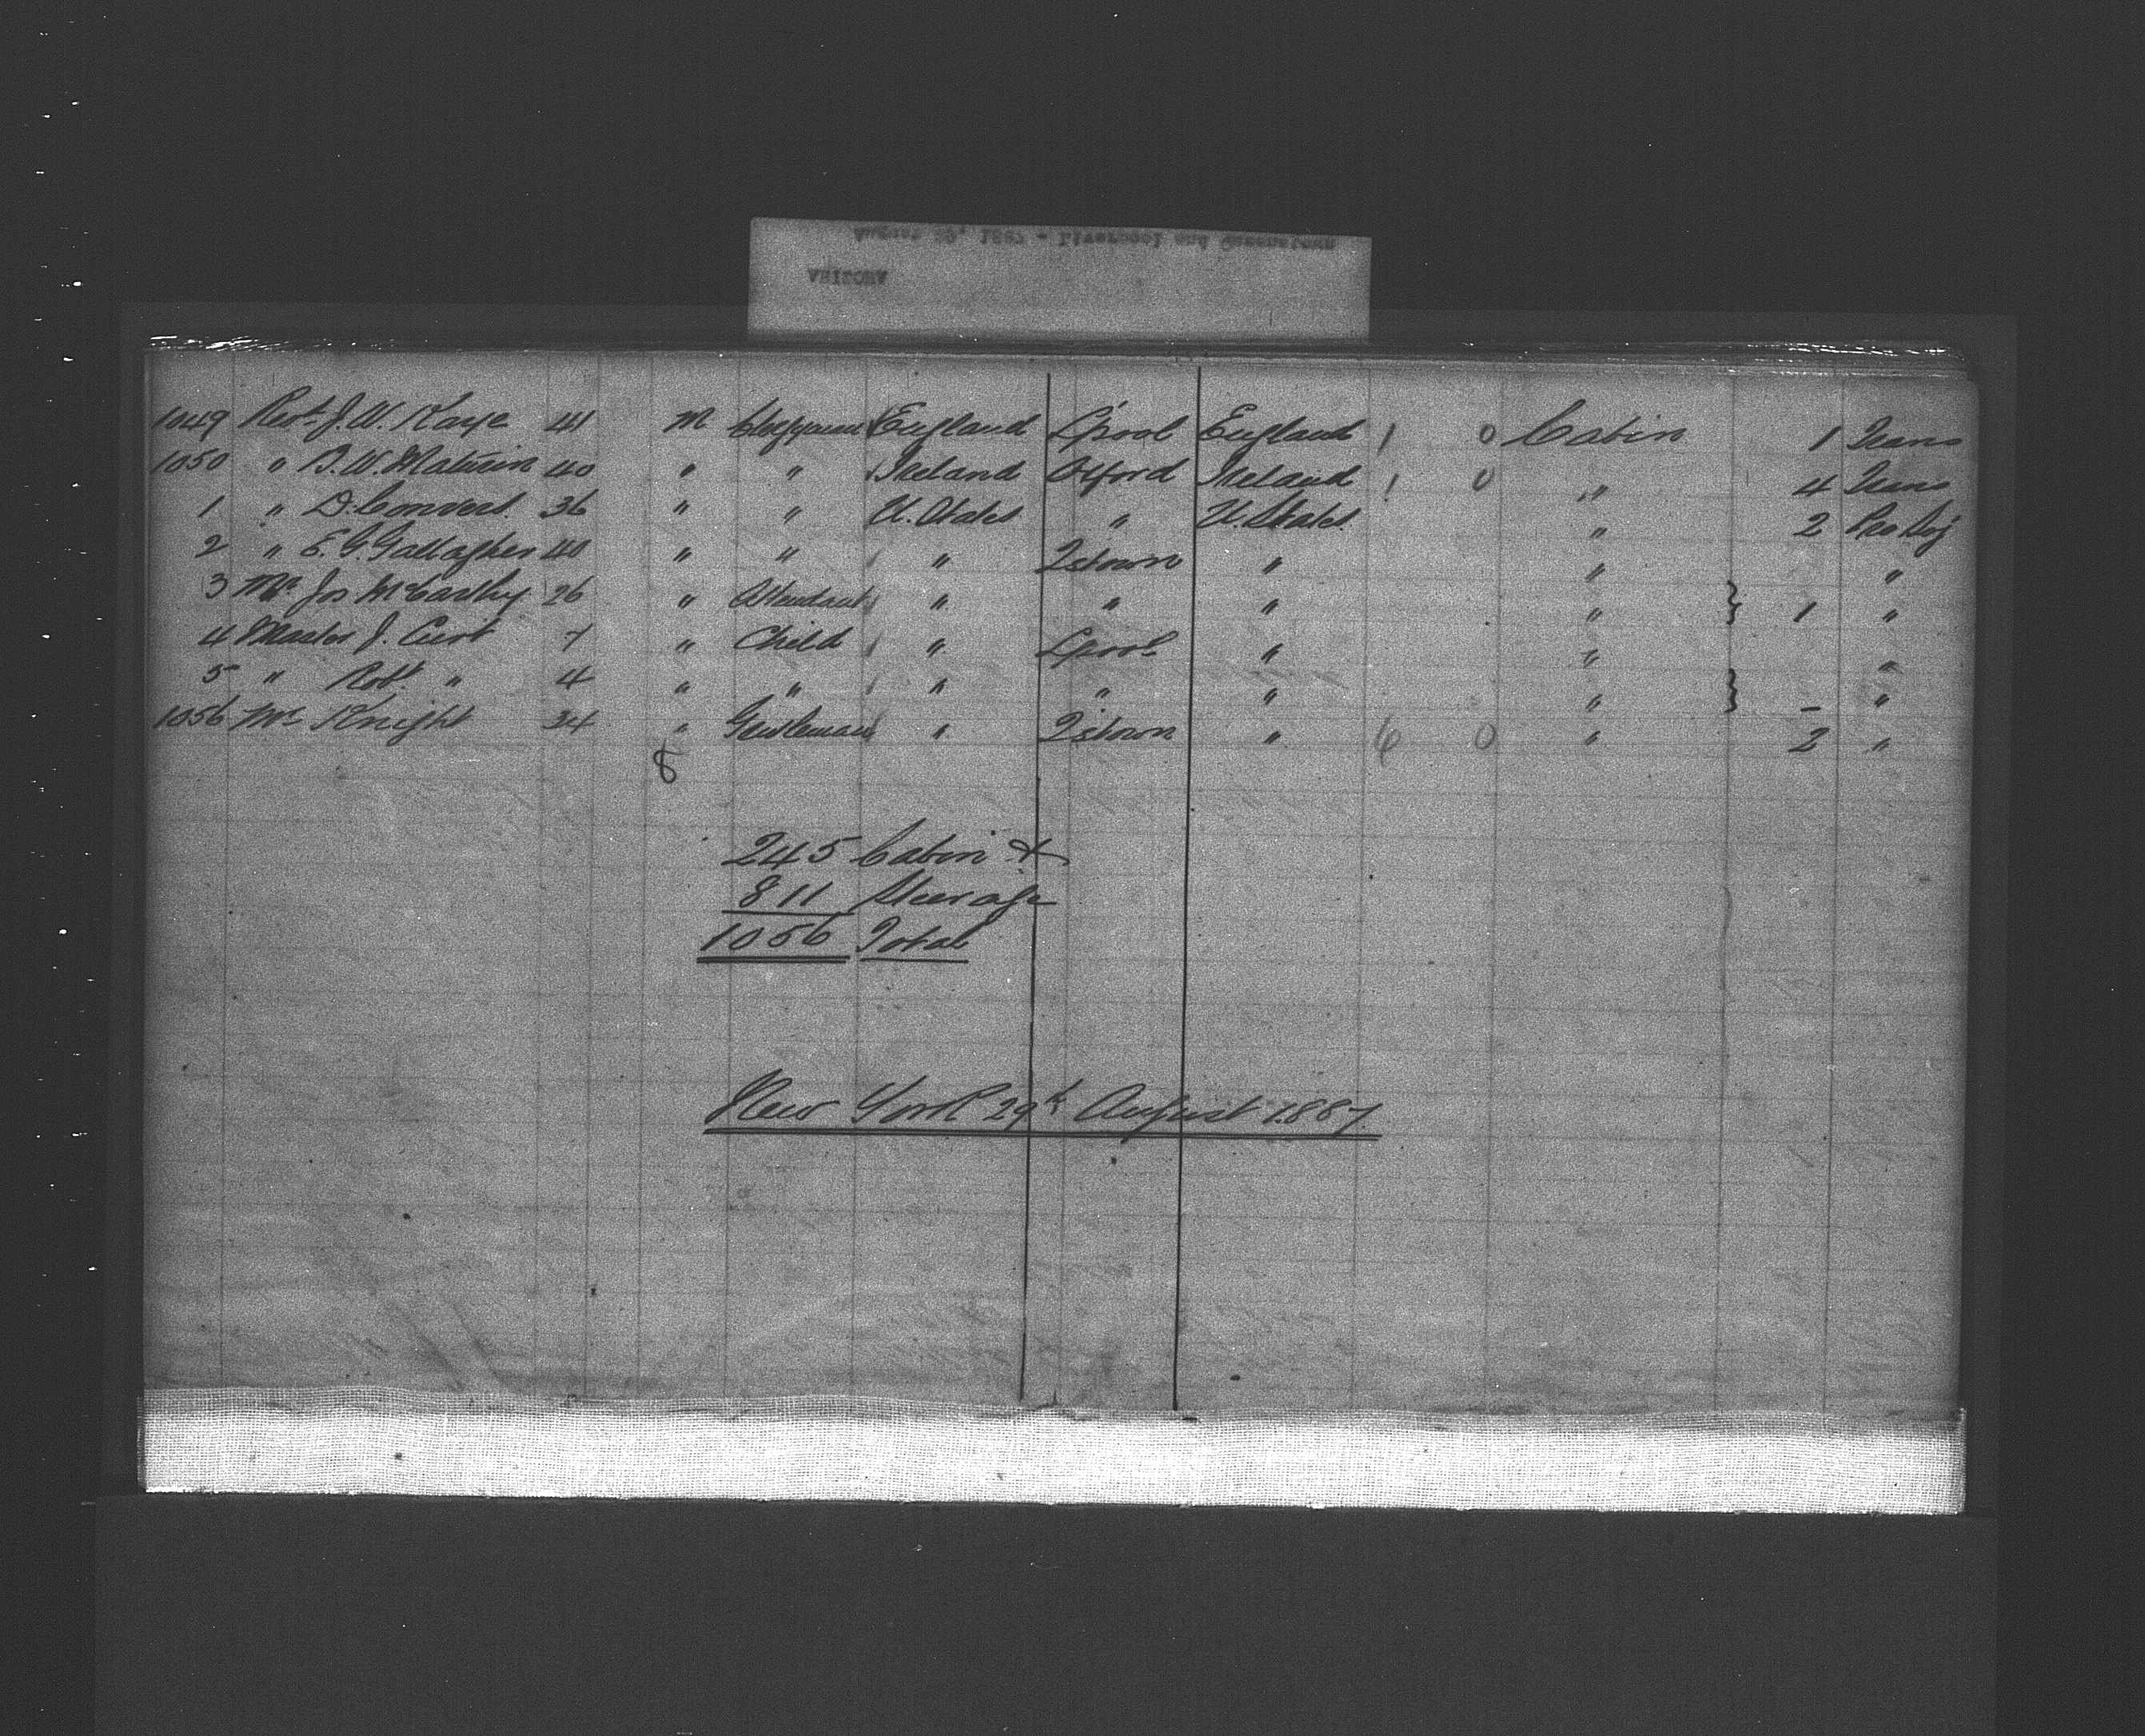 August 29, 1887 - Liverpool and Queenstown
1049 Revd. J. W. Kaye 41 M Clergyman England L'pool England 1 0 Cabin 1 Trans
1050 " B. W. Maturin 40 " " Ireland Oxford Ireland 1 0 " 4 Trans
1 " D. Convers. 36 " " U. States " U. States. " 2 Pro Soj
2 " E. G. Gallagher 40 " " " Q'stown " " "
3 Mr Jos McCarthy 26 " Attendant " " " " } 1 "
4 Master J. 7 " Child " L'pool " " "
5 " Robt. " 4 " " " " " " } - "
1056 Mr Knight 34 " Gentleman " Q'stown " 6 0 " 2 "
8
245 Cabin &
811 Steerage
1056 Total
New York 29th August 1887.